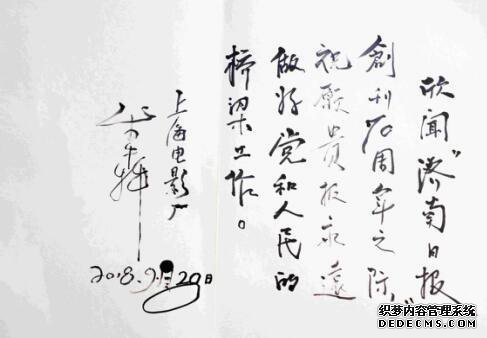 欣闻"济南日报
創刊70周年之际"
祝願贵报永遠
做好党和人民的
桥梁工作。
上海电影厂
2018.9月20日
织梦内容管理系统
DEDECMS.COM